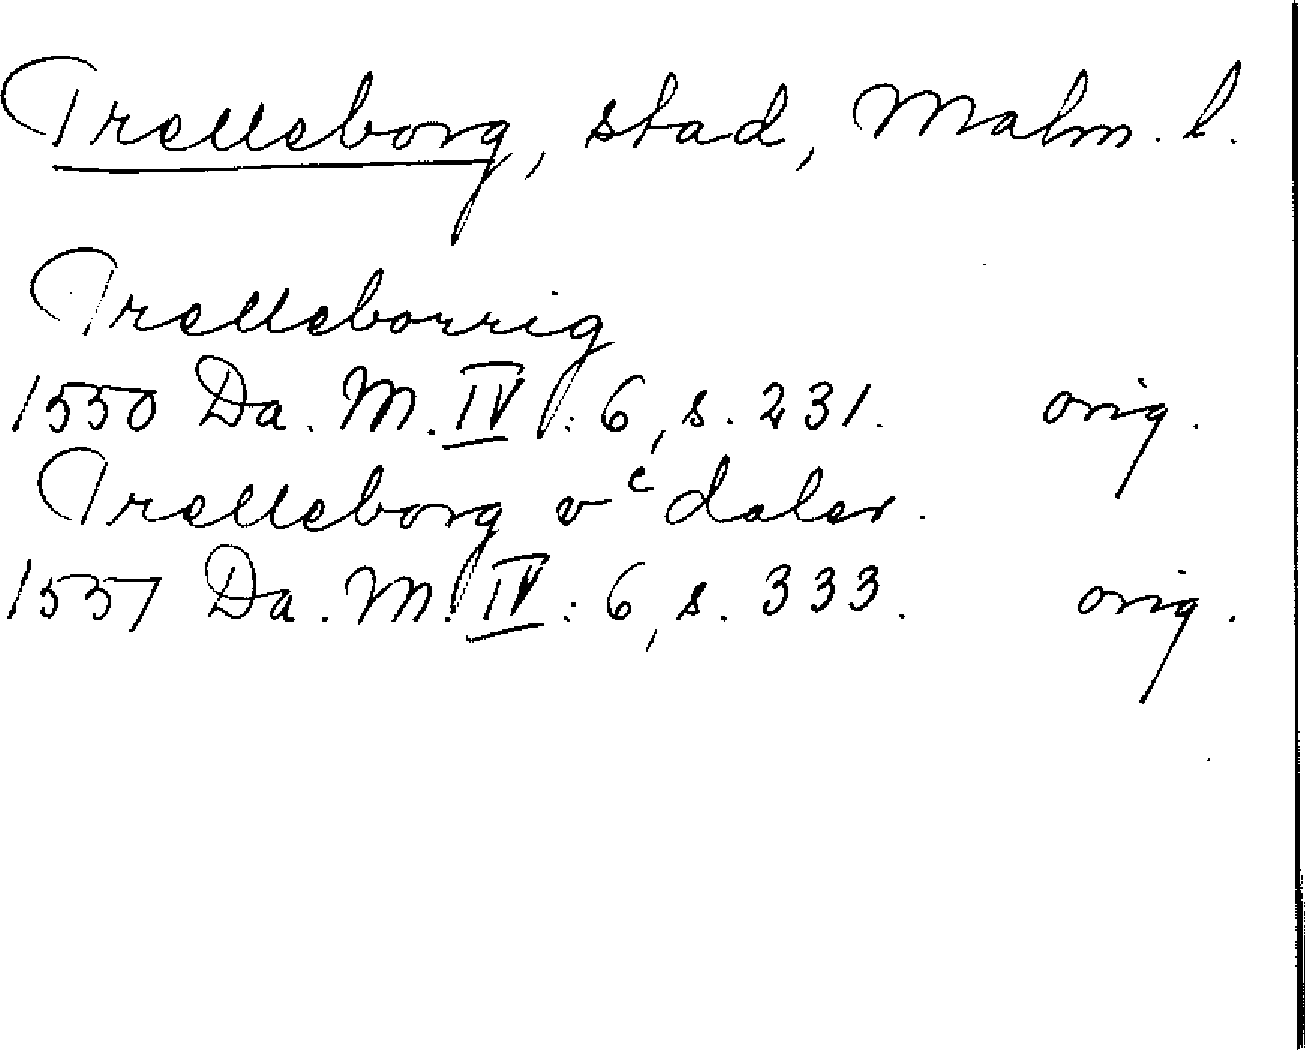 Trelleborg, stad, Malm. l.
Trelleborrig
1550 Da. M. IV : 6, s. 231. orig.
Trelleborg vᶜ daler.
1557 Da. M. IV : 6, s. 333. orig.